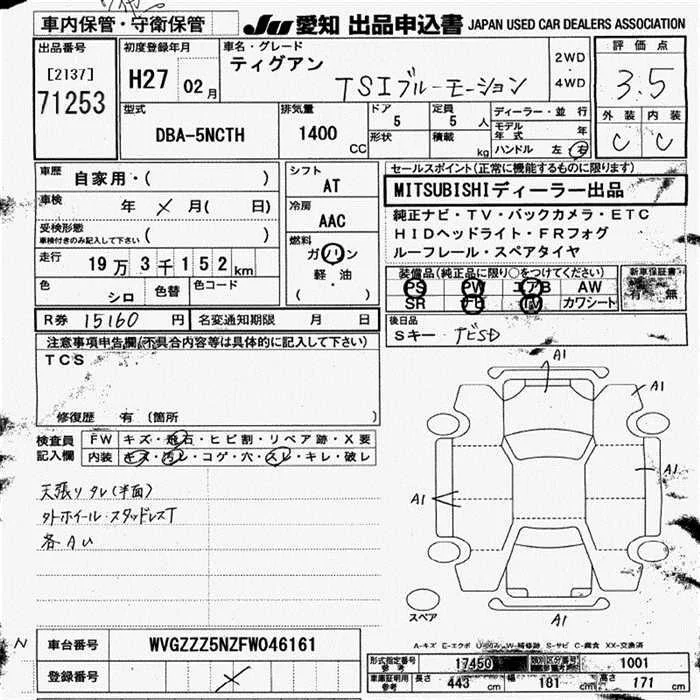 車内保管・守衛保管
JU 愛知 出品申込書 JAPAN USED CAR DEALERS ASSOCIATION
出品番号
[2137]
71253
初度登録年月
H27 02月
車名・グレード
ティグアン
TSIブルーモーション
2WD
4WD
評価点
3.5
外装 内装
C C
型式
DBA-5NCTH
排気量
1400 CC
ドア
5
形状
定員
5 人
積載 kg
ディーラー・並行
モデル年式 年
ハンドル 左 右
車歴
自家用・( )
車検
年 X 月( 日)
受検形態
車検付きのみ記入して下さい ( )
走行
19万3千152km
色
シロ
色替
色コード
シフト
AT
冷房
AAC
燃料
ガソリン
軽・油
( )
セールスポイント(正常に機能するものに限ります)
MITSUBISHIディーラー出品
純正ナビ・TV・バックカメラ・ETC
HIDヘッドライト・FRフォグ
ルーフレール・スペアタイヤ
装備品(純正品に限り○をつけてください)
PS PW エアB AW
SR ナビ TV カワシート
新車保証書
有 無
R券 15160 円 名変通知期限 月 日
後日品
Sキー
注意事項申告欄(不具合内容等は具体的に記入して下さい)
TCS
修復歴 有 (箇所 )
検査員記入欄
FW キズ・飛石・ヒビ割・リペア跡・X要
内装 キズ・汚レ・コゲ・穴・スレ・キレ・破レ
天張りタレ(半面)
外ホイール・スタッドレスT
各AU
A1
A1
A1
A1
A1
スペア
N
車台番号 WVGZZZ5NZFW046161
登録番号 X
A-キズ E-エクボ U-ヘコミ W-補修跡 S-サビ C-腐食 XX-交換済
形式指定番号参考 17450 類別区分番号 1001
車庫証明用参考 長さ 443 cm 幅 181 cm 高さ 171 cm